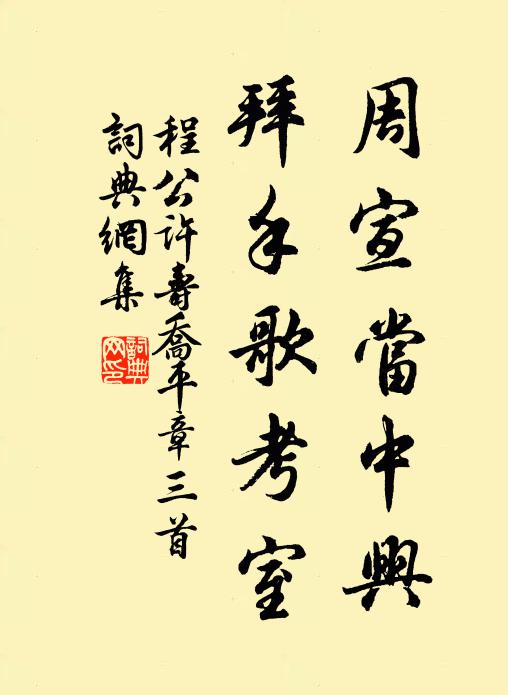 周宣當中興
拜手歌考室
程公許壽喬平章三首
詞典網集
詞典網印